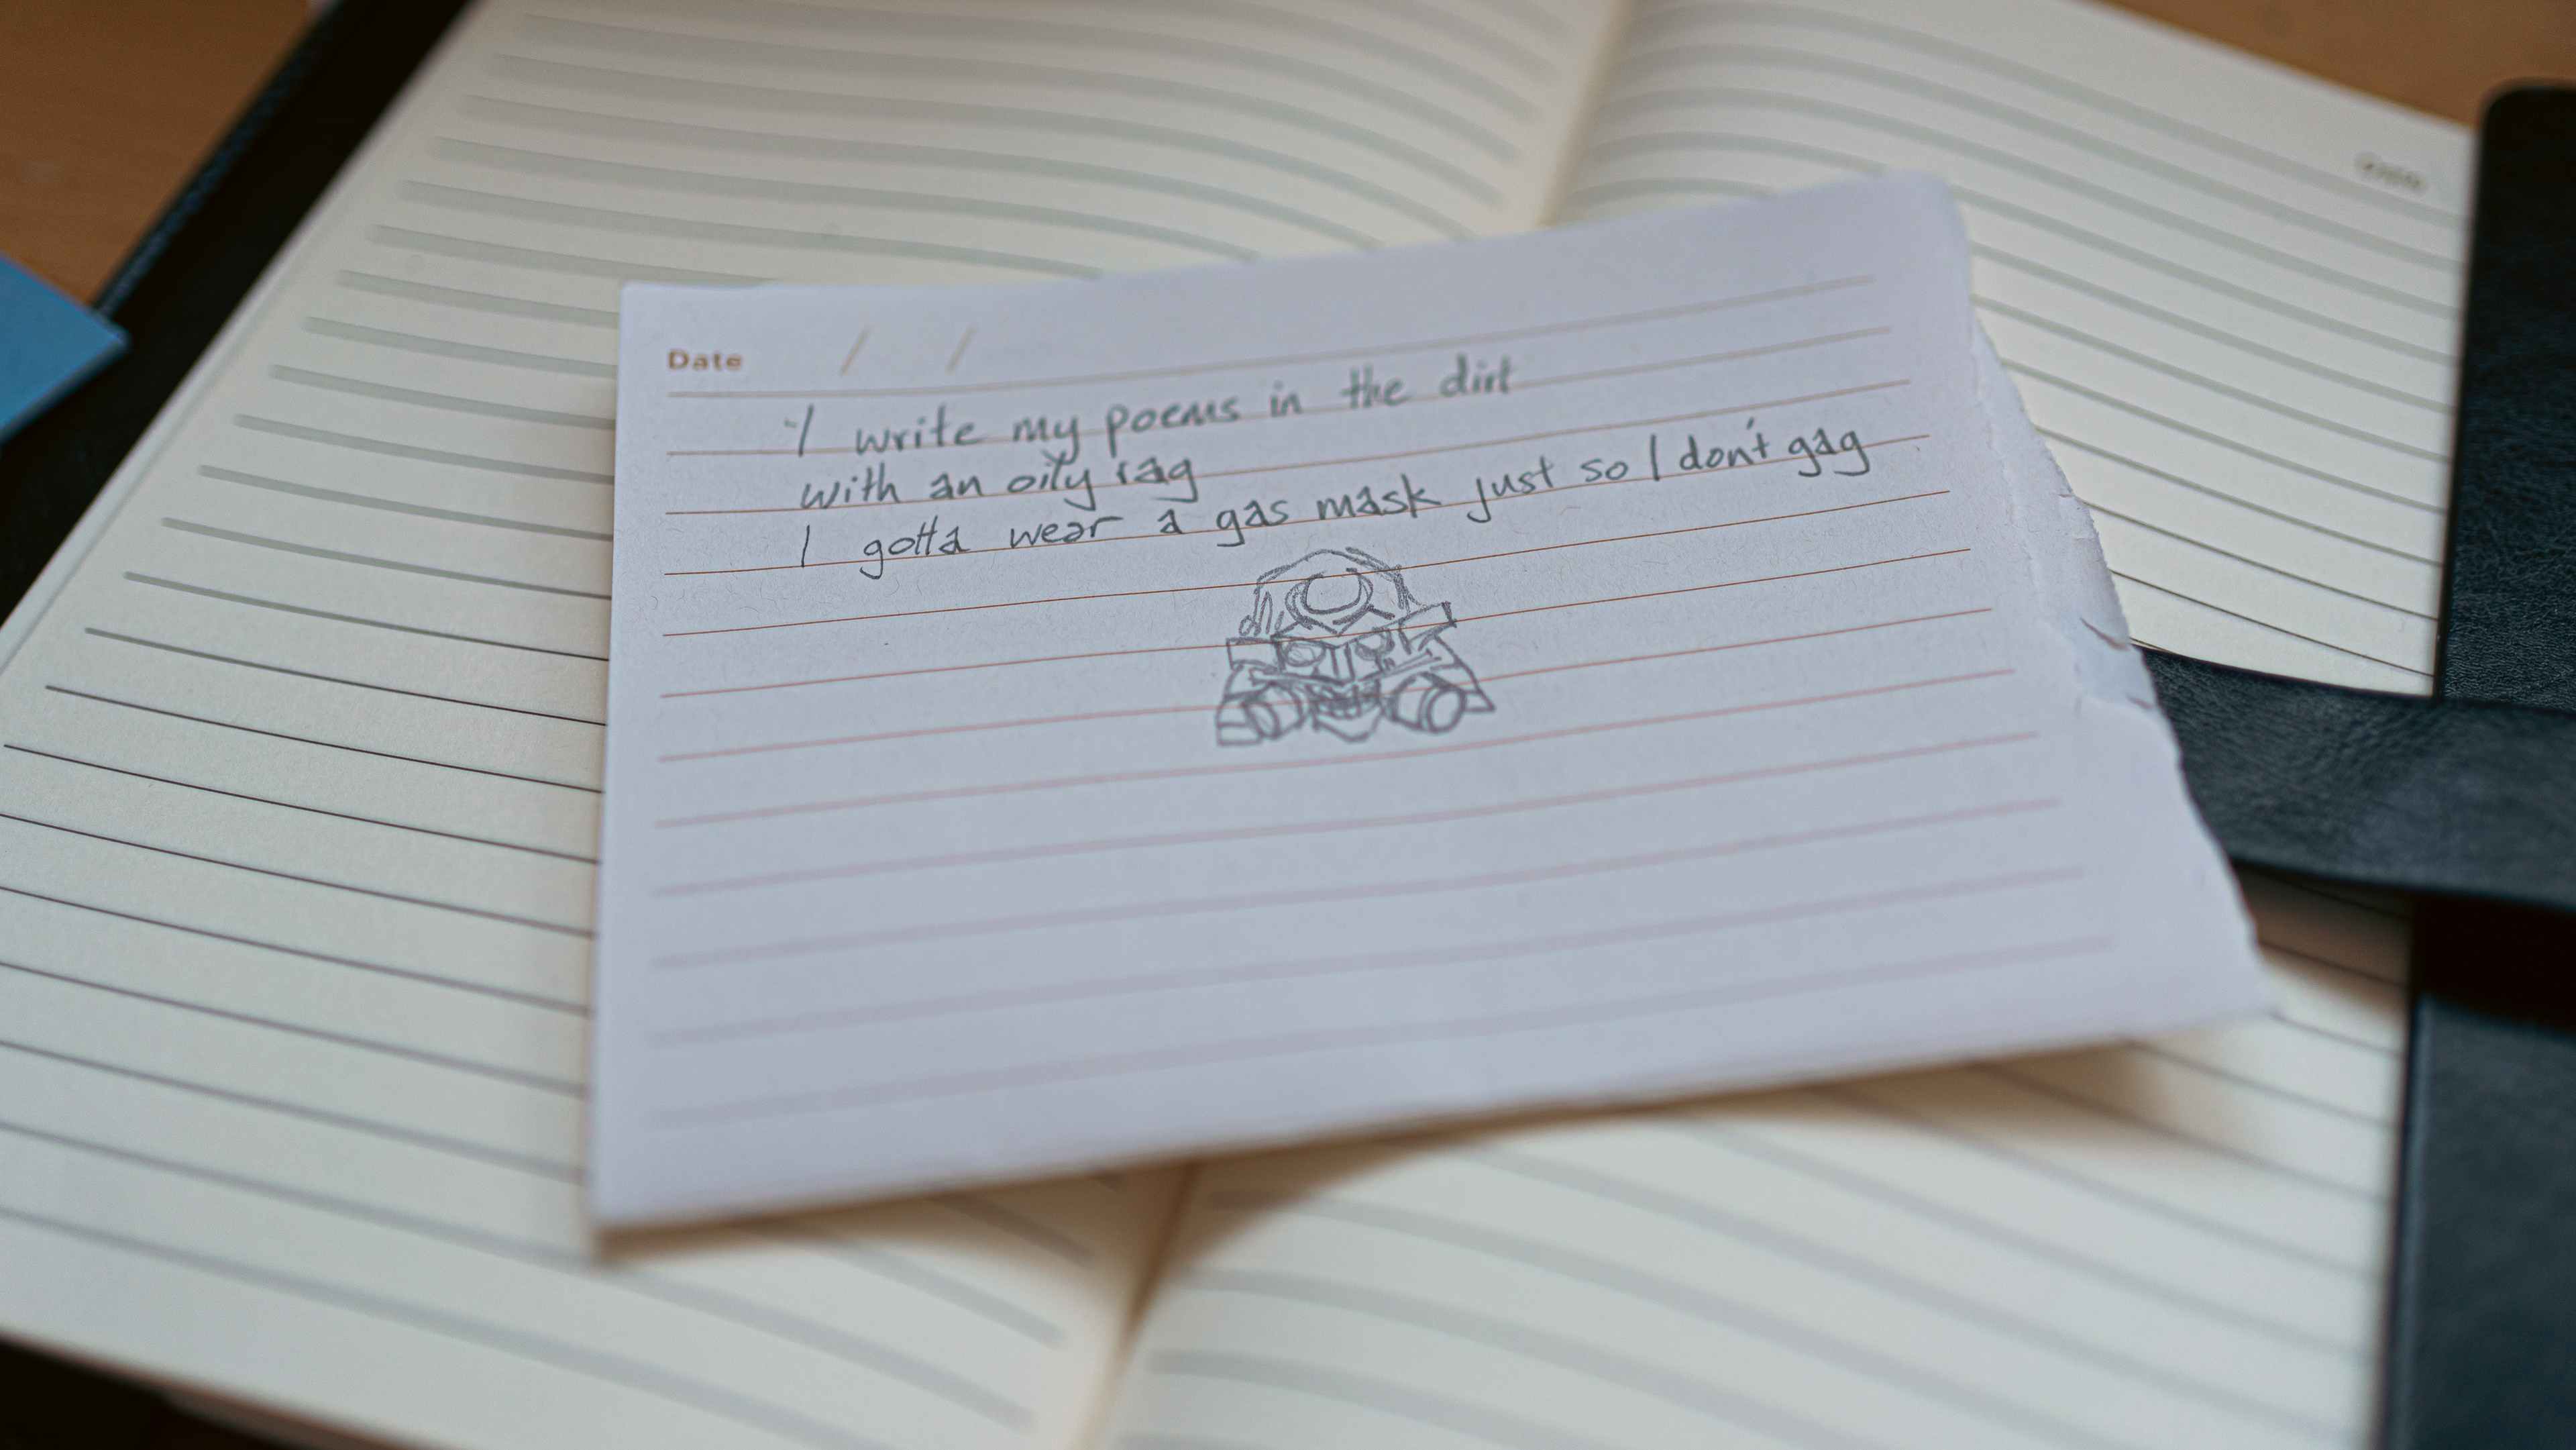 Date / /
I write my poems in the dirt
with an oily rag
I gotta wear a gas mask just so I don't gag